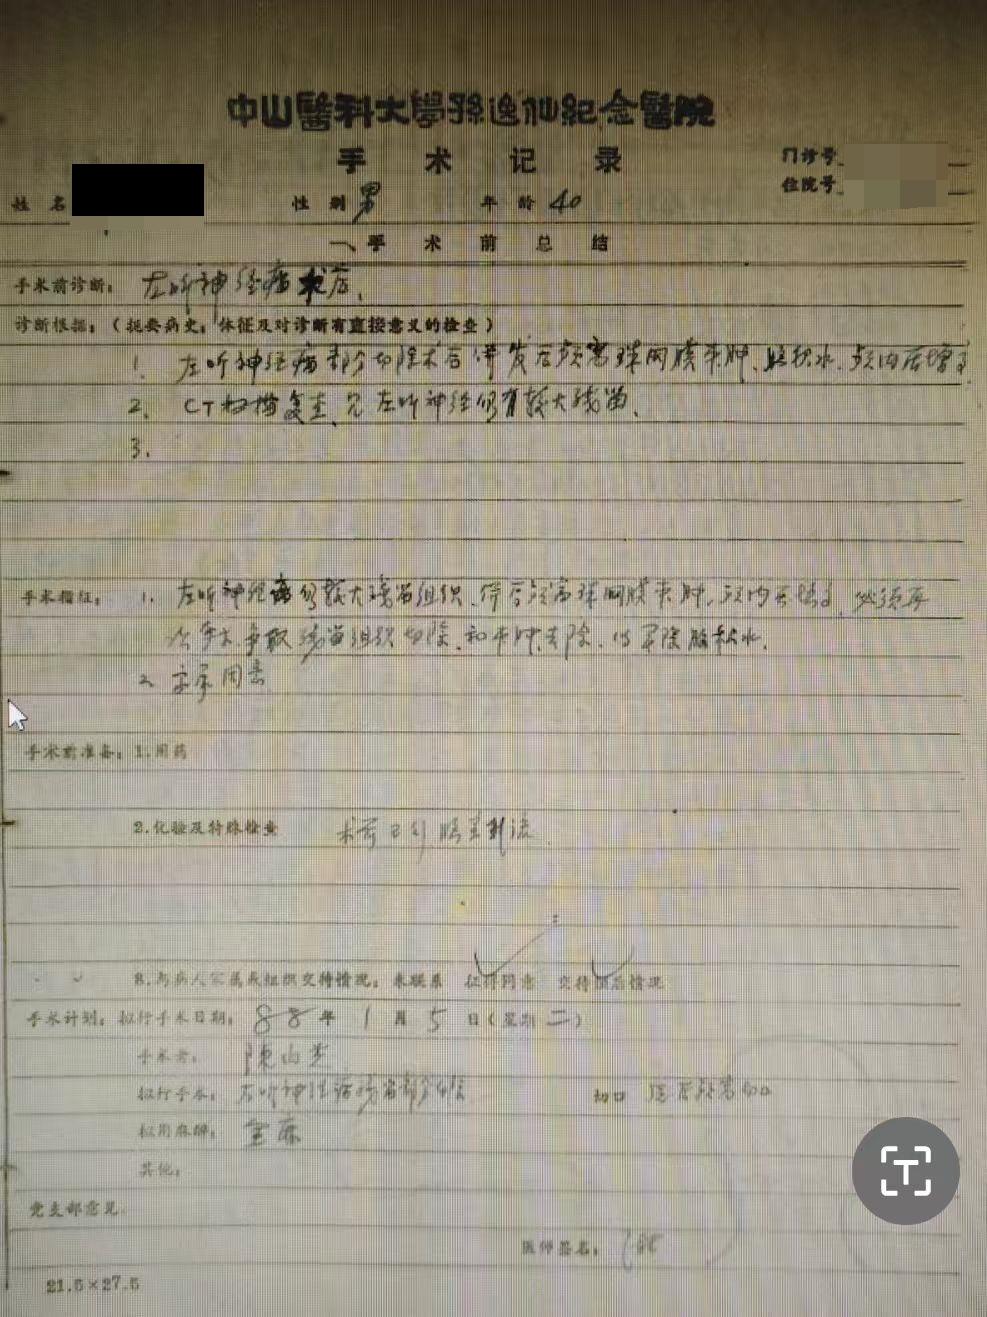 中山醫科大學孫逸仙紀念醫院
手术记录
门诊号
住院号
姓名 性别男 年龄40
一、手术前总结
手术前诊断：左听神经瘤术后.
诊断根据：（扼要病史，体征及对诊断有直接意义的检查）
1. 左听神经瘤部分切除术后并发后颅窝蛛网膜囊肿、脑积水、颅内压增高
2. CT扫描复查、见左听神经仍有较大残留.
3.
手术指征： 1. 左听神经瘤仍较大残留组织、伴后颅窝蛛网膜囊肿、颅内压增高、必须再
次手术、争取残留组织切除、和囊肿去除、以解除脑积水.
2. 家属同意
手术前准备：1.用药
2.化验及特殊检查 术前已行脑室引流
3.与病人家属或组织交待情况：未联系 征得同意 交待预后情况
手术计划：拟行手术日期：88年1月5日（星期二）
手术者：陳
拟行手术：左听神经瘤残留部分切除 切口
拟用麻醉：全麻
其他：
党支部意见
医师签名：
21.5×27.5